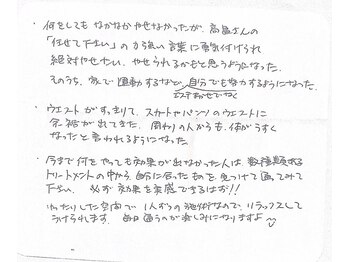 ・何をしてもなかなかやせなかったが、高畠さんの
「任せて下さい」の力強い言葉に勇気付けられ
絶対やせたい、やせられるかもと思うようになった。
そのうち、家で運動するなど、自分でも努力するようになった。
エステまかせでなく
・ウエストがすっきりして、スカートやパンツのウエストに
余裕が出てきた。周りの人からも、体がうすく
なったと言われるようになった。
・今まで何をやっても効果が出なかった人は、数種類ある
トリートメントの中から、自分に合ったものを見つけて通ってみて
下さい。必ず効果を実感できるはず!!
ゆったりした空間で1人ずつの施術なので、リラックスして
うけられます。毎回通うのが楽しみになりますよ